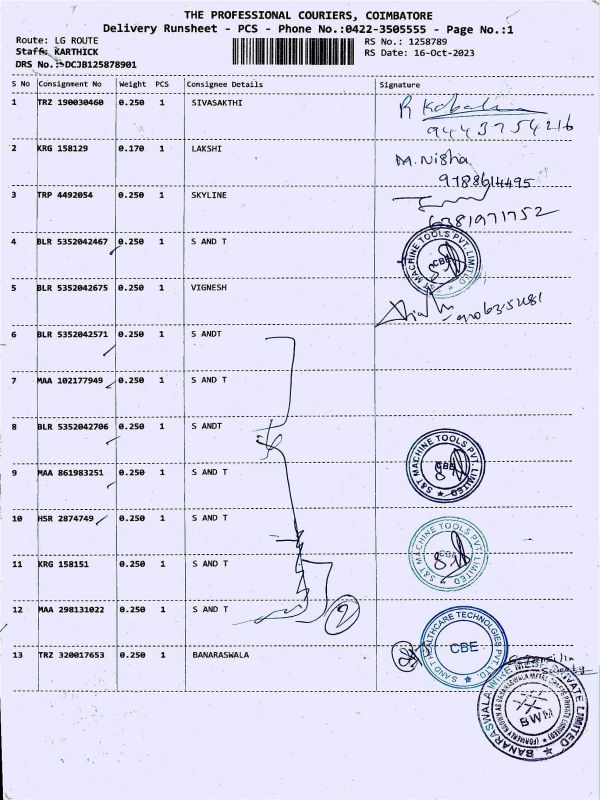 THE PROFESSIONAL COURIERS, COIMBATORE
Delivery Runsheet - PCS - Phone No.:0422-3505555 - Page No.:1
Route: LG ROUTE
RS No.: 1258789
Staff: KARTHICK
RS Date: 16-Oct-2023
DRS No.: DCJB125878901
S No Consignment No Weight PCS Consignee Details Signature
1 TRZ 190030460 0.250 1 SIVASAKTHI
9443754216
2 KRG 158129 0.170 1 LAKSHI M. Nisha
9788614495
3 TRP 4492054 0.250 1 SKYLINE
6381971752
4 BLR 5352042467 0.250 1 S AND T
S&T MACHINE TOOLS PVT. LIMITED
CBE
5 BLR 5352042675 0.250 1 VIGNESH
6 BLR 5352042571 0.250 1 S ANDT
7 MAA 102177949 0.250 1 S AND T
8 BLR 5352042706 0.250 1 S ANDT
S&T MACHINE TOOLS PVT. LIMITED
CBE
9 MAA 861983251 0.250 1 S AND T
10 HSR 2874749 0.250 1 S AND T
S&T MACHINE TOOLS PVT. LIMITED
CBE
11 KRG 158151 0.250 1 S AND T
12 MAA 298131022 0.250 1 S AND T
S AND T HEALTHCARE TECHNOLOGIES PVT. LTD.
CBE
13 TRZ 320017653 0.250 1 BANARASWALA
BANARASWALA WIRE MESH PRIVATE LIMITED
BWM